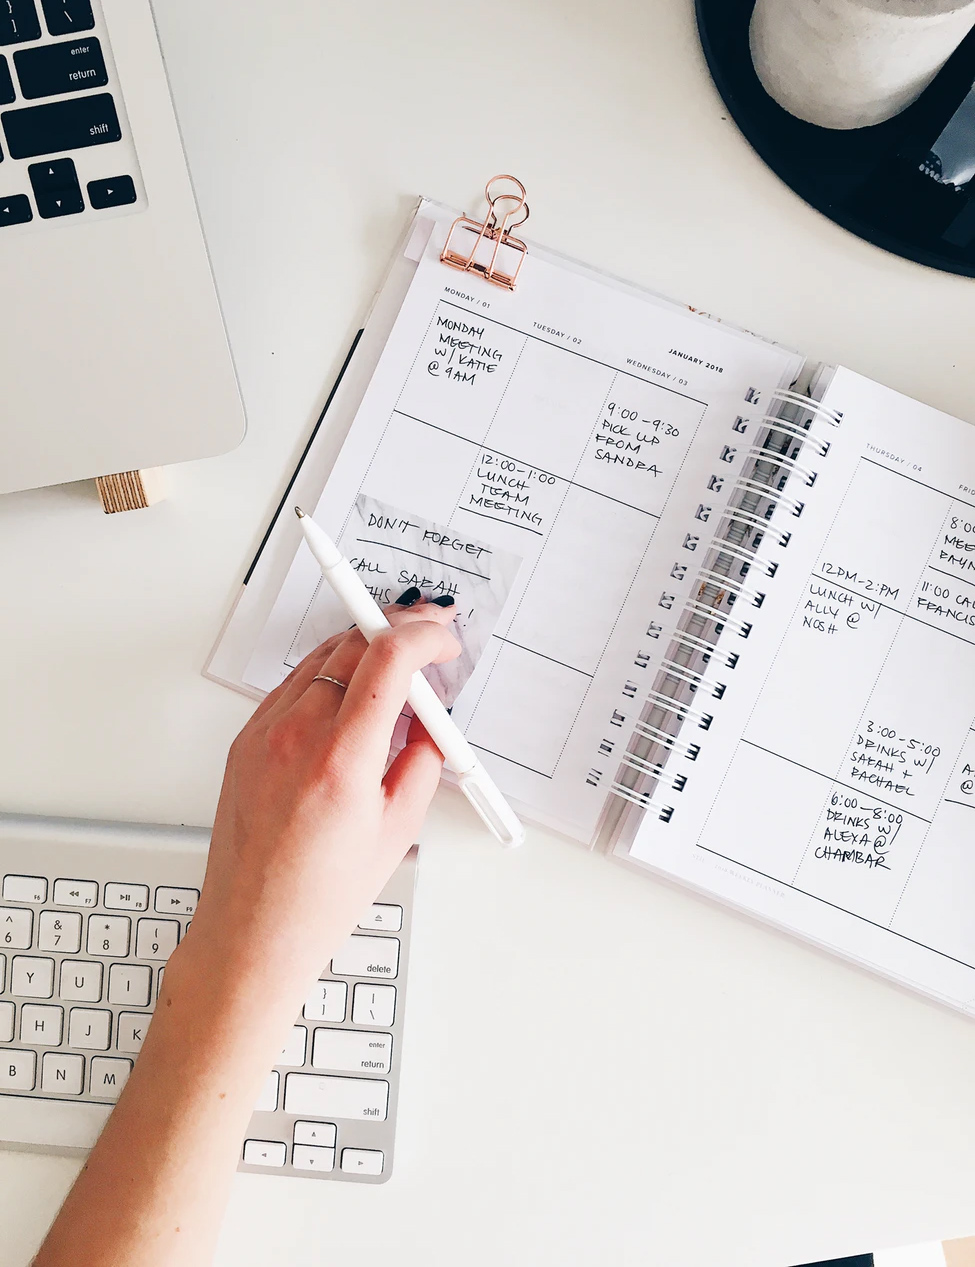 JANUARY 2018
MONDAY / 01
MONDAY
MEETING
W/ KATIE
@ 9AM
TUESDAY / 02
12:00-1:00
LUNCH
TEAM
MEETING
WEDNESDAY / 03
9:00-9:30
PICK UP
FROM
SANDRA
DON'T FORGET
CALL SARAH
THIS
!
THURSDAY / 04
12PM-2:PM
LUNCH W/
ALLY @
NOSH
3:00-5:00
DRINKS W/
SARAH +
RACHAEL
6:00-8:00
DRINKS W/
ALEXA @
CHAMBAR
FRI
8:0
MEE
11:00 CA
FRANCIS
A
@
enter
return
shift
F6
F7
F8
F9
^
6
&
7
*
8
(
9
Y
U
I
H
J
K
B
N
M
delete
}
]
|
\
enter
return
shift